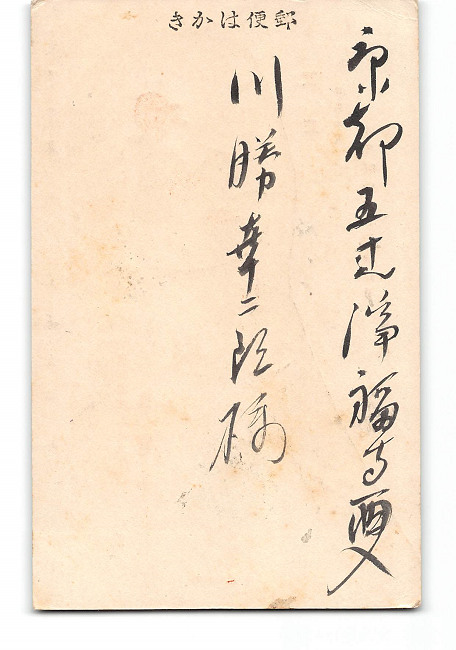 郵便はかき
京都五辻淨福寺西入
川勝幸二郎様